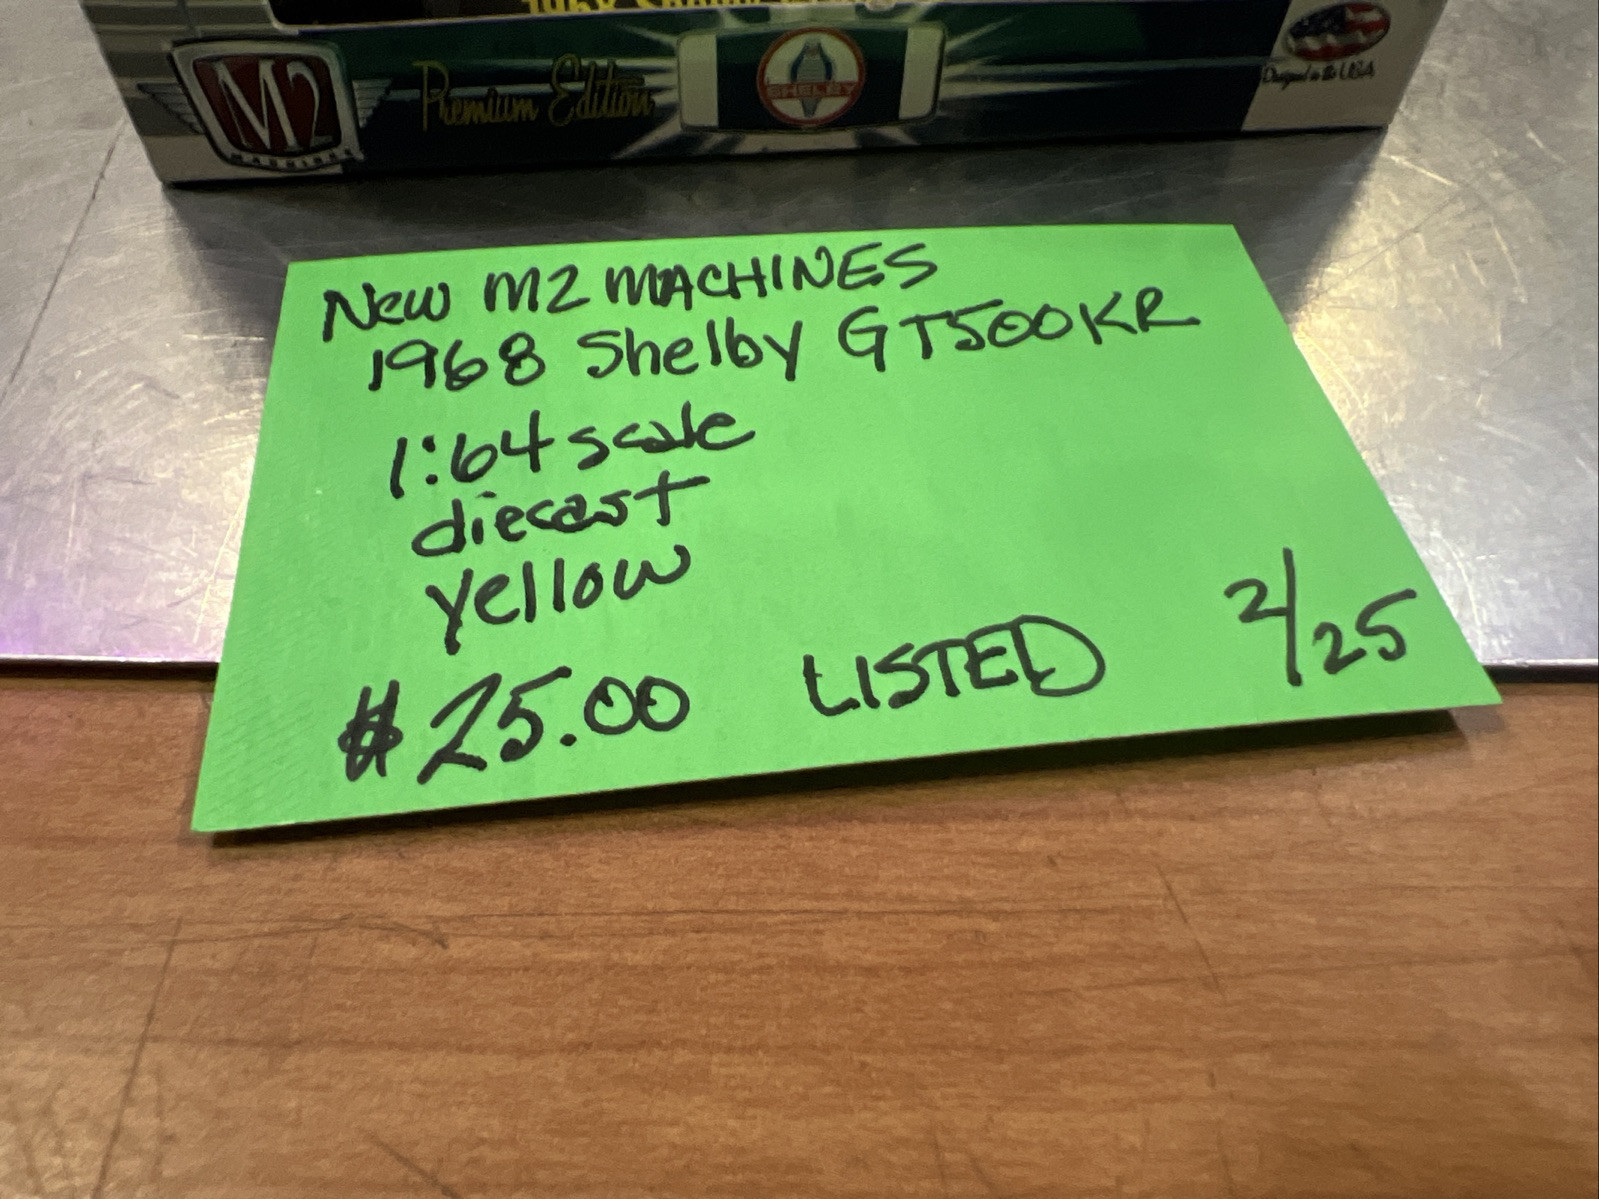 1968 Shelby
M2
MACHINES
Premium Edition
SHELBY
Designed in the USA
New M2 MACHINES
1968 Shelby GT500KR
1:64 scale
diecast
yellow
$25.00 LISTED 2/25